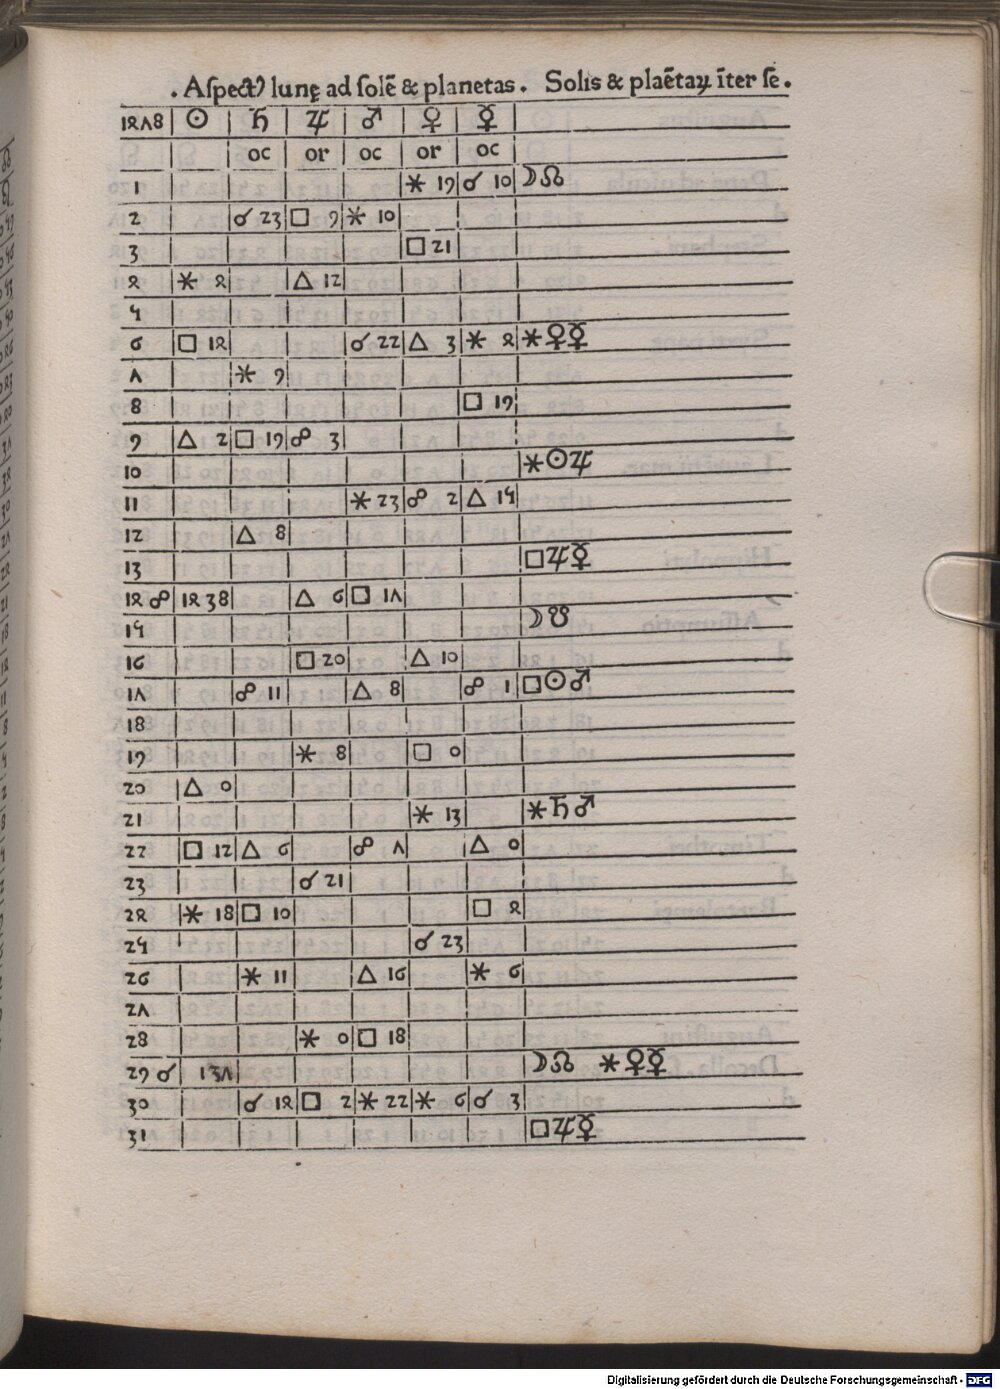 . Aspectꝰ lunę ad solē & planetas . Solis & plaētaꝝ īter se .
1478 ☉ ♄ ♃ ♂ ♀ ☿
oc or oc or oc
1 ⚹ 19 ☌ 10 ☽☊
2 ☌ 23 □ 9 ⚹ 10
3 □ 21
4 ⚹ 4 △ 12
5
6 □ 14 ☌ 22 △ 3 ⚹ 4 ⚹♀☿
7 ⚹ 9
8 □ 19
9 △ 2 □ 19 ☍ 3
10 ⚹☉♃
11 ⚹ 23 ☍ 2 △ 15
12 △ 8
13 □♃☿
14 ☍ 14 38 △ 6 □ 17
15 ☽☋
16 □ 20 △ 10
17 ☍ 11 △ 8 ☍ 1 □☉♂
18
19 ⚹ 8 □ 0
20 △ 0
21 ⚹ 13 ⚹♄♂
22 □ 12 △ 6 ☍ 7 △ 0
23 ☌ 21
24 ⚹ 18 □ 10 □ 4
25 ☌ 23
26 ⚹ 11 △ 16 ⚹ 6
27
28 ⚹ 0 □ 18
29 ☌ 1 37 ☽☊ ⚹♀☿
30 ☌ 14 □ 2 ⚹ 22 ⚹ 6 ☌ 3
31 □♃☿
Digitalisierung gefördert durch die Deutsche Forschungsgemeinschaft - DFG